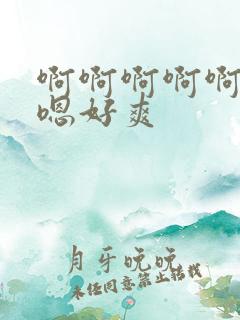 啊啊啊啊啊
嗯好爽
月牙晚晚
未经同意禁止转载